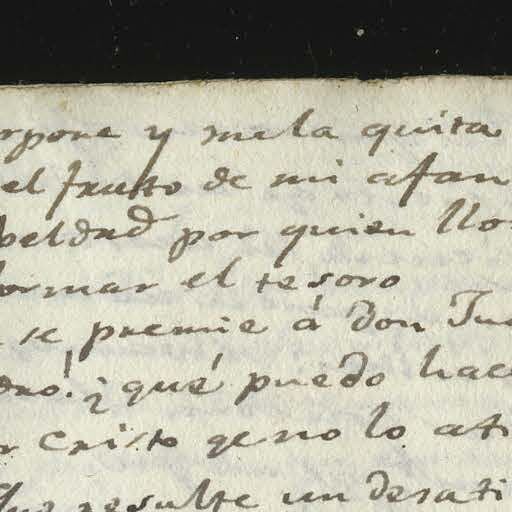 rpone y me la quita
el frutto de mi afan
beldad por quien llo
formar el tesoro
se premie á don Jua
dro! ¿qué puedo hace
r Cristo qe no lo ati
que resulte un desati